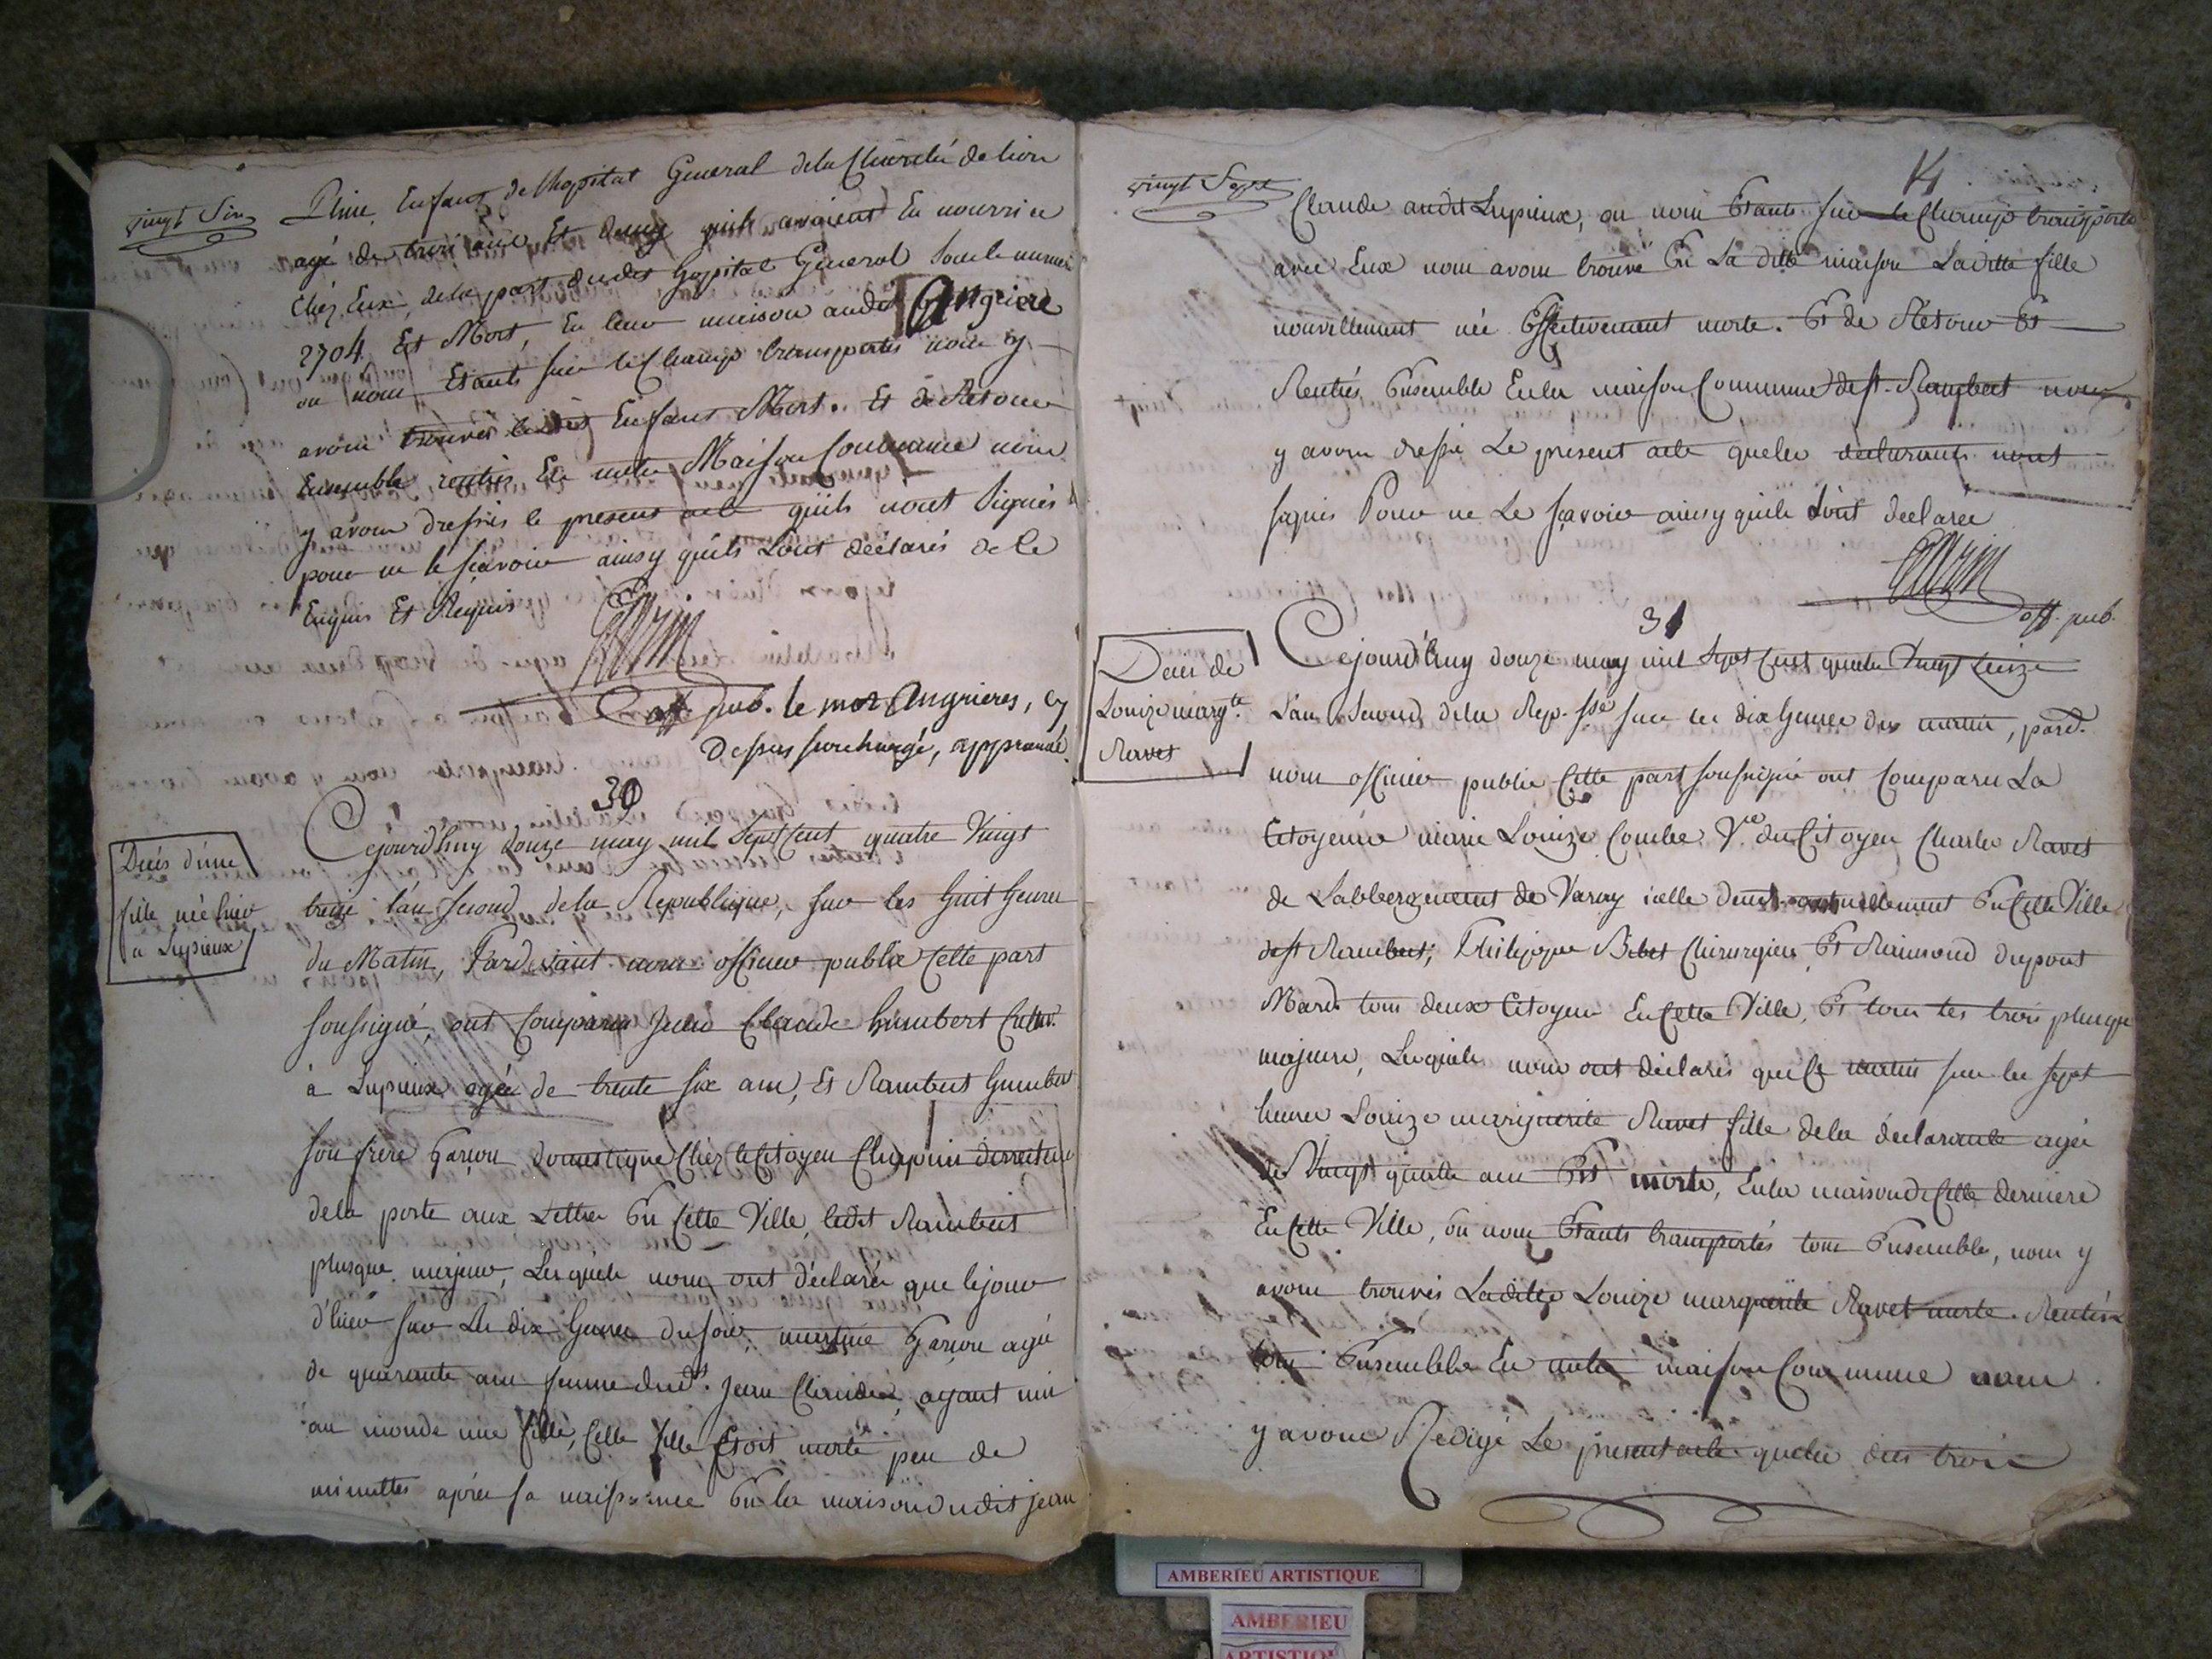 vingt Six
Enfant de lhopital General dela Charité de lion
agé de trois ans Et demy quils avoient En nourrice
Chéz Eux, dela part dudit hopital General Sous le numero
2704 Et Mort, En leur maison audit Angriere
ou nous Etants sur le Champ transportés nous y
avons trouvés ledit Enfant Mort. Et de Retour
Ensemble rentrés En notre Maison Commune nous
y avons dressés le present acte quils n'ont Signés
pour ne le sçavoir ainsy quils L'ont déclarés de Ce
Enquis Et Requis
off. pub. le mot Angrieres, cy
Dessus surchargé, approuvé
30
Decés d'une
fille née hier
a Lupieux
Cejourd'huy douze may mil Sept Cent quatre Vingt
treize l'an second dela Republique, sur les huit heures
du Matin, Pardevant nous officier public Cette part
soussigné, ont Comparu Jean Claude humbert Cultivr.
à Lupieux agée de trente six ans, Et Rambert humbert
son frere Garçon domestique Chéz le Citoyen Chapuis directeur
dela poste aux Lettres En Cette Ville, ledit Rambert
plusque majeur, Lesquels nous ont déclarés que le jour
d'hier sur Les dix heures du soir, agée
de quarante ans femme dudt. Jean Claude, ayant mis
au monde une fille, Celle fille Etoit morte peu de
minuttes aprés sa naissance En la maison dudit jean
vingt Sept
Claude audit Lupieux, ou nous Etants sur le Champ transportés
avec Eux nous avons trouvé En La ditte maison Laditte fille
nouvellement née Effectivement morte. Et de Retour Et
Rentrés Ensemble En la maison Commune de st. Rambert nous
y avons dressé Le present acte que les declarants n'ont
signés Pour ne Le sçavoir ainsy quils L'ont declarés
off. pub.
31
Deces de
Louize margte.
Ravet
Cejourd'huy douze may mil Sept Cent quatre Vingt treize
L'an Second dela Rep. sse sur les dix heures du matin, pard.
nous officier public Cette part soussigné ont Comparu La
Citoyenne marie Louize Combe Ve. du Citoyen Charles Ravet
de Labbergement de Varey icelle demt. actuellement En Cette Ville
de st Rambert, Philippe Bibet Chirurgien, Et Raimond dupont
Mard. tous deux Citoyens En Cette Ville, Et tous les trois plusque
majeurs, Lesquels nous ont déclarés que Ce matin sur les sept
heures Louize marguerite Ravet fille dela déclarante agée
de Vingt quatre ans Est morte, En la maison de Cette derniere
En Cette Ville, ou nous Etants transportés tous Ensembles, nous y
avons trouvés Laditte Louize marguerite Ravet morte. Rentrés
tous Ensembles En notre maison Commune nous
y avons Redigé Le present acte que les dits trois
AMBERIEU ARTISTIQUE
AMBERIEU
ARTISTIQUE